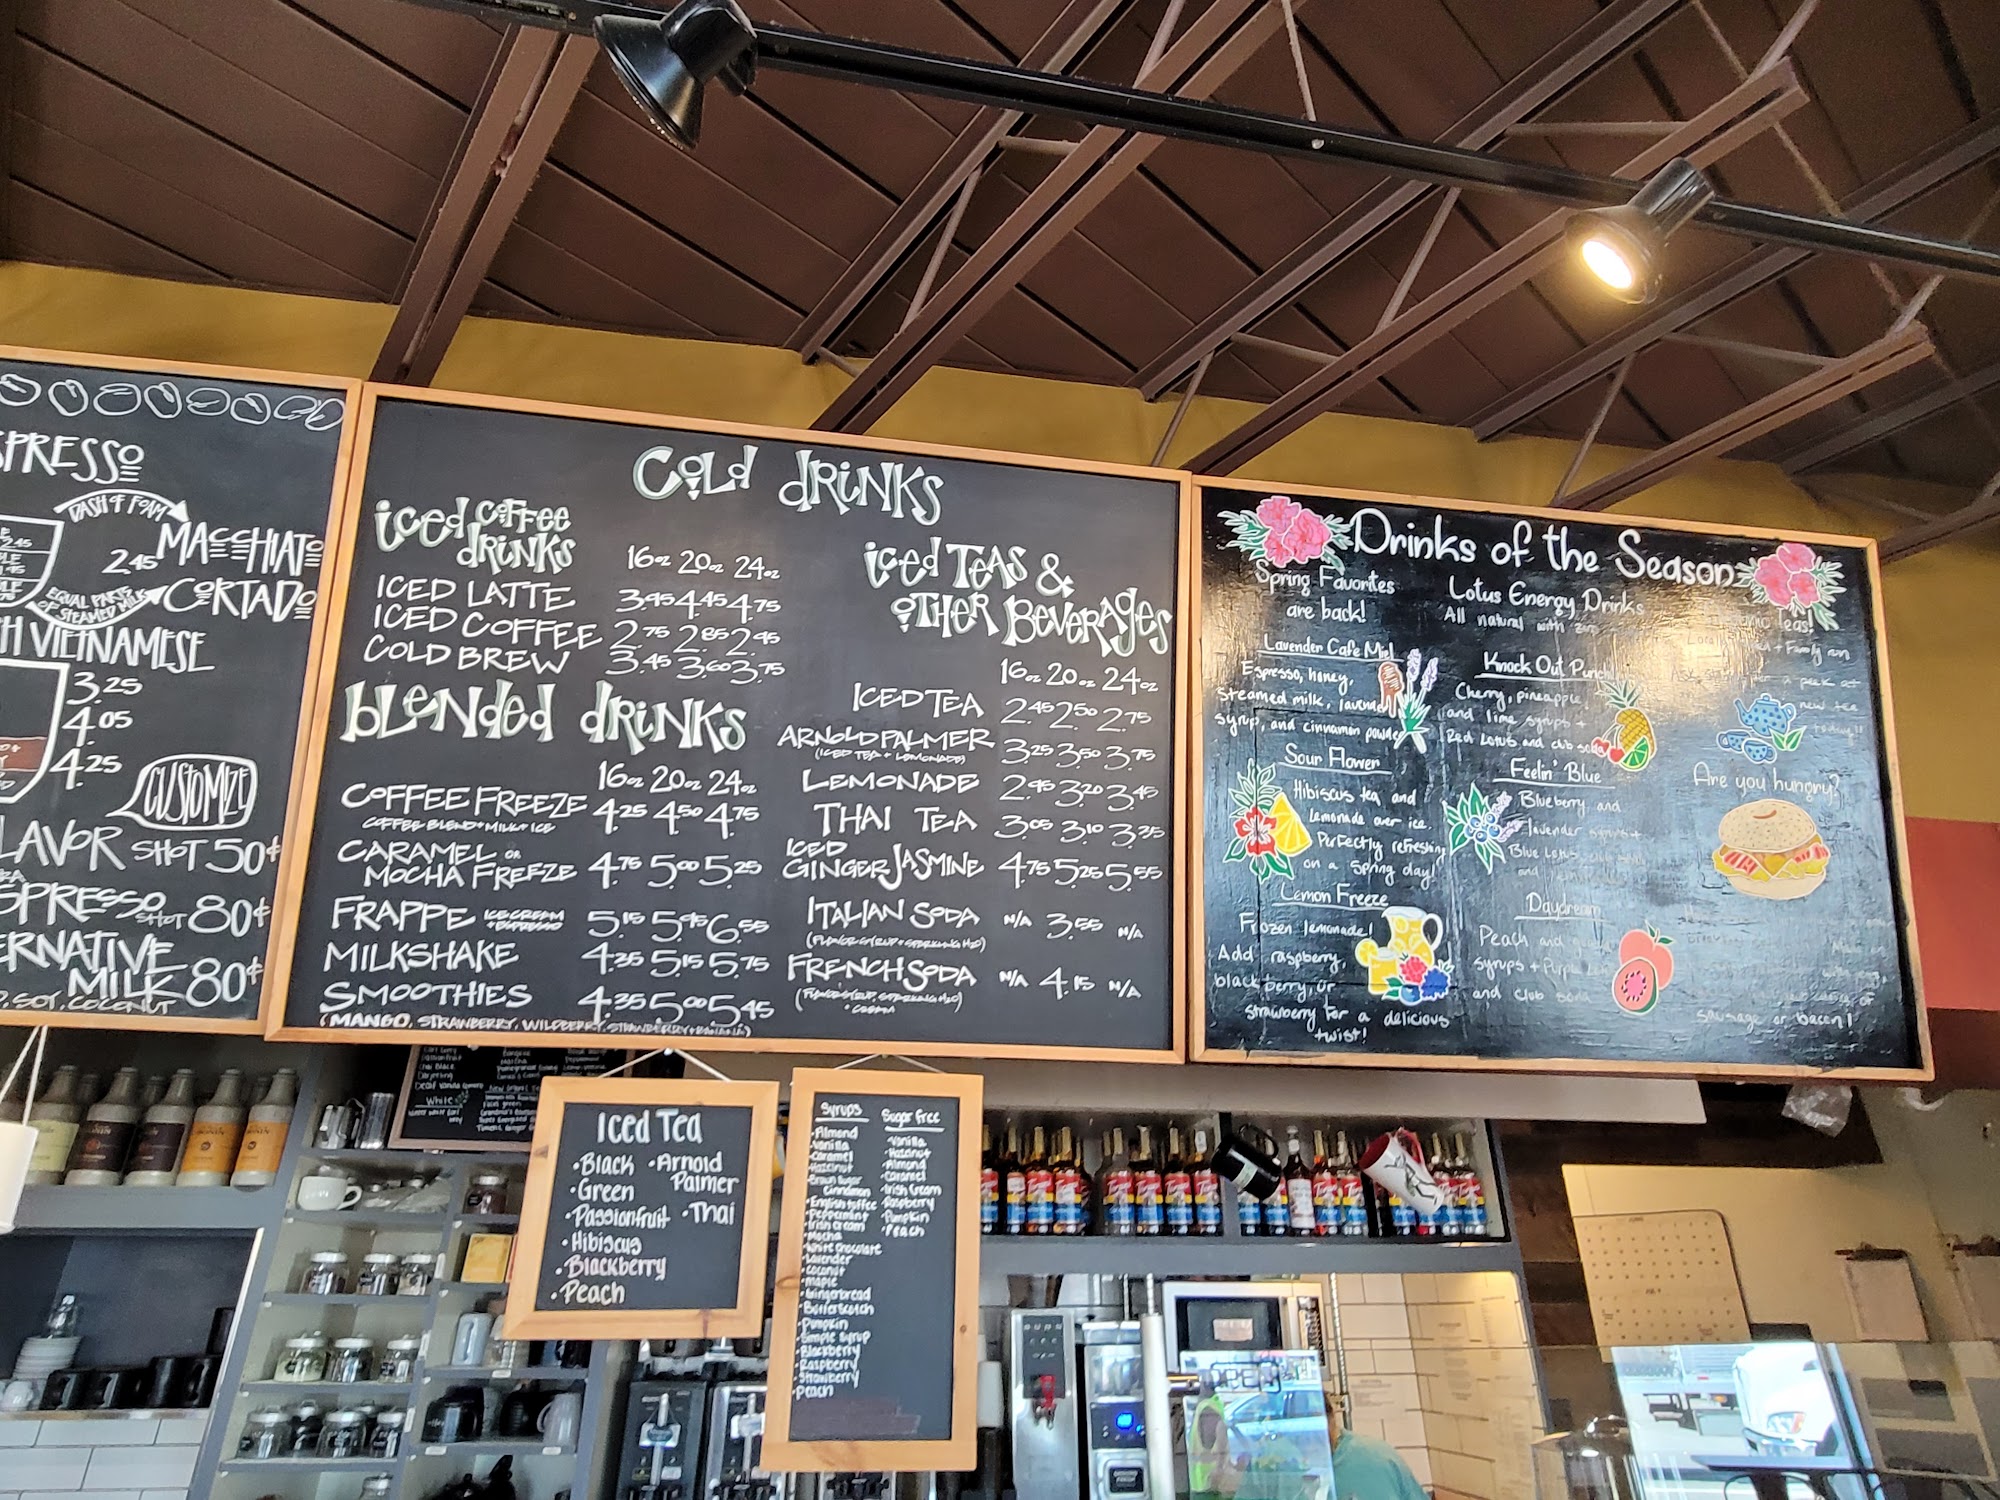 SPRESSO
DASH OF FOAM
MACCHIATO
2.45
CORTADO
EQUAL PARTS
OF STEAMED MILK
VIETNAMESE
3.25
4.05
4.25
CUSTOMIZE
LAVOR SHOT 50¢
SPRESSO SHOT 80¢
ERNATIVE
MILK 80¢
SOY, COCONUT
COLD DRINKS
iced COFFEE
DRINKS
16oz 20oz 24oz
ICED LATTE 3.95 4.45 4.75
ICED COFFEE 2.75 2.85 2.95
COLD BREW 3.45 3.60 3.75
BLENDED DRINKS
16oz 20oz 24oz
COFFEE FREEZE 4.25 4.50 4.75
COFFEE BLEND + MILK + ICE
CARAMEL OR
MOCHA FREEZE 4.75 5.00 5.25
FRAPPE ICE CREAM + ESPRESSO 5.15 5.95 6.55
MILKSHAKE 4.35 5.15 5.75
SMOOTHIES 4.35 5.00 5.45
(MANGO, STRAWBERRY, WILDBERRY, STRAWBERRY + BANANA)
iced TEAS &
OTHER BEVERAGES
16oz 20oz 24oz
ICED TEA 2.45 2.50 2.75
ARNOLD PALMER 3.25 3.50 3.75
(ICED TEA + LEMONADE)
LEMONADE 2.95 3.20 3.45
THAI TEA 3.05 3.10 3.35
ICED
GINGER JASMINE 4.75 5.25 5.55
ITALIAN SODA N/A 3.55 N/A
(FLAVOR SYRUP + SPARKLING H2O)
FRENCH SODA N/A 4.15 N/A
(FLAVOR SYRUP, SPARKLING H2O
+ CREAM)
Drinks of the Season
Spring Favorites
are back!
Lavender Cafe Miel
Espresso, honey,
steamed milk, lavender
syrup, and cinnamon powder
Sour Flower
Hibiscus tea and
Lemonade over ice.
Perfectly refreshing
on a spring day!
Lemon Freeze
Frozen lemonade!
Add raspberry,
blackberry, or
strawberry for a delicious
twist!
Lotus Energy Drinks
All natural with
Knock Out Punch
Cherry, pineapple,
and lime syrups +
Red Lotus and club soda
Feelin' Blue
Blueberry and
lavender syrups +
Blue Lotus
Daydream
Peach and
syrups + Purple
and club soda
Teas!
+ Family run
new tea
today!!
Are you hungry?
sausage or bacon!
Iced Tea
• Black
• Green
• Passionfruit
• Hibiscus
• Blackberry
• Peach
• Arnold
Palmer
• Thai
Syrups
• Almond
• Vanilla
• Caramel
• Hazelnut
• Brown Sugar
Cinnamon
• English toffee
• Peppermint
• Irish cream
• Mocha
• White Chocolate
• Lavender
• Coconut
• Maple
• Gingerbread
• Butterscotch
• Pumpkin
• Simple Syrup
• Blackberry
• Raspberry
• Strawberry
• Peach
Sugar Free
• Vanilla
• Hazelnut
• Almond
• Caramel
• Irish Cream
• Raspberry
• Pumpkin
• Peach
White